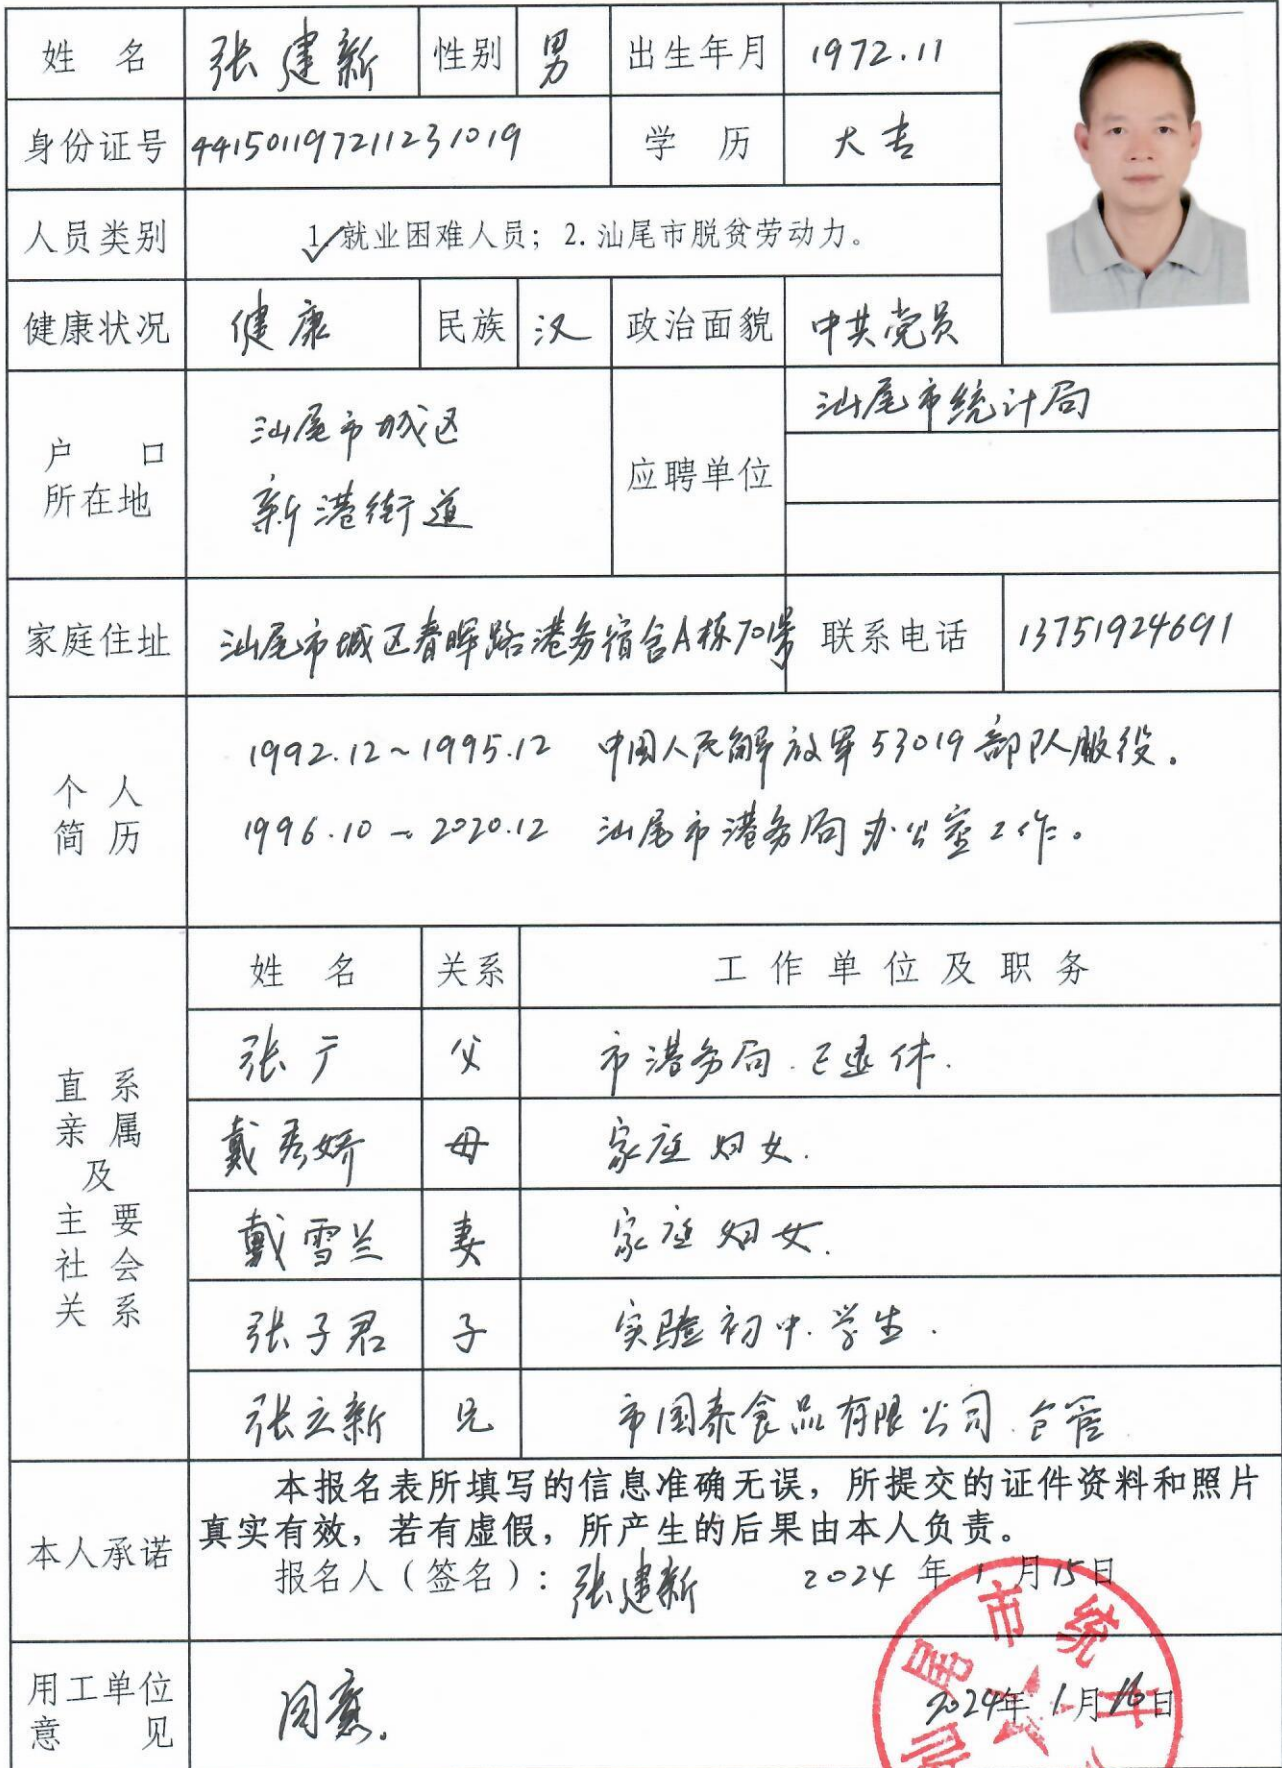 姓 名 张建新 性别 男 出生年月 1972.11
身份证号 441501197211231019 学 历 大专
人员类别 1.就业困难人员；2.汕尾市脱贫劳动力。
健康状况 健康 民族 汉 政治面貌 中共党员
户 口
所在地
汕尾市城区
新港街道
应聘单位
汕尾市统计局
家庭住址 汕尾市城区春晖路港务宿舍A栋701号 联系电话 13751924691
个 人
简 历
1992.12~1995.12 中国人民解放军53019部队服役。
1996.10~2020.12 汕尾市港务局办公室工作。
直 系
亲 属
及
主 要
社 会
关 系
姓 名 关系 工作单位及职务
张广 父 市港务局.已退休.
戴秀娇 母 家庭妇女.
戴雪兰 妻 家庭妇女.
张子君 子 实验初中.学生.
张立新 兄 市国泰食品有限公司.仓管
本人承诺
本报名表所填写的信息准确无误，所提交的证件资料和照片
真实有效，若有虚假，所产生的后果由本人负责。
报名人（签名）：张建新 2024年1月15日
用工单位
意 见
同意。
2024年1月16日
尾市统计局